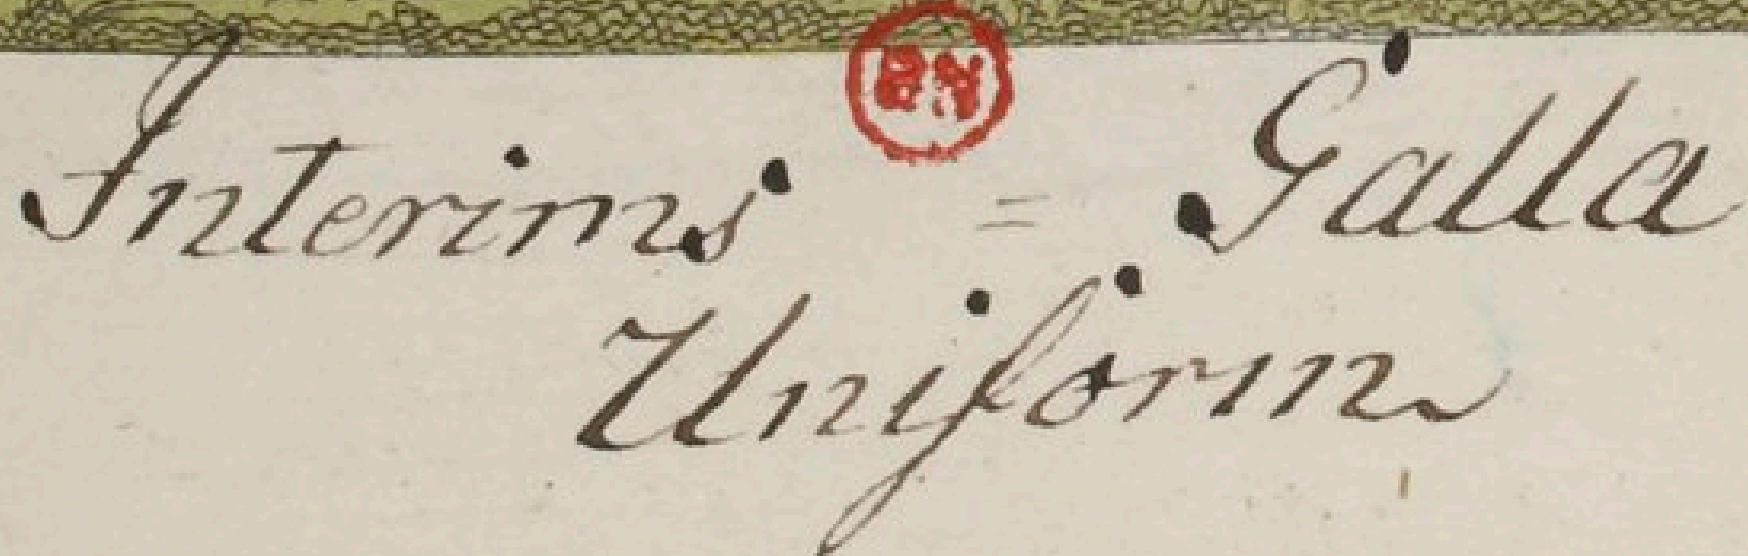 BN
Interims = Galla
Uniform